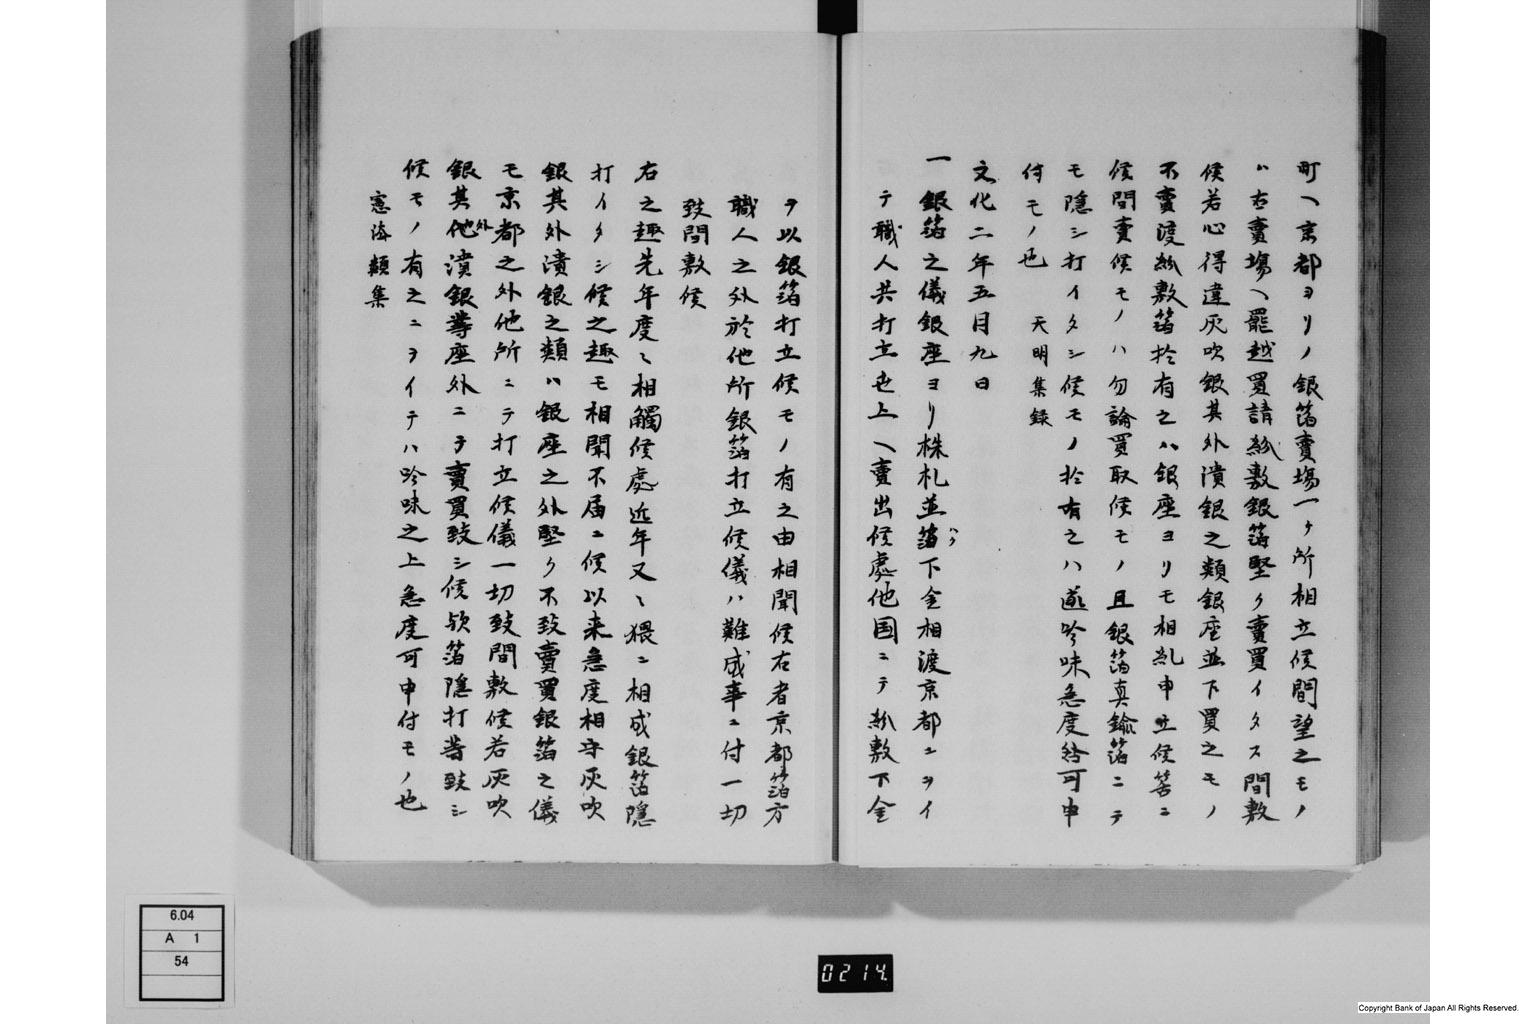 町ヘ京都ヨリノ銀箔賣場一ケ所相立候間望之モノ
ハ右賣場ヘ罷越買請紛敷銀箔堅ク賣買イタス間敷
候若心得違灰吹銀其外潰銀之類銀座並下買之モノ
不賣渡紛敷箔於有之ハ銀座ヨリモ相糺申立候筈ニ
候間賣候モノハ勿論買取候モノ且銀箔真鍮箔ニテ
モ隱シ打イタシ候モノ於有之ハ遂吟味急度咎可申
付モノ也 天明集録
文化二年五月九日
一 銀箔之儀銀座ヨリ株札並箔下金相渡京都ニヲイ
ハク
テ職人共打立世上ヘ賣出候處他国ニテ紛敷下金
ヲ以銀箔打立候モノ有之由相聞候右者京都箔方
職人之外於他所銀箔打立候儀ハ難成事ニ付一切
致間敷候
右之趣先年度〻相觸候處近年又〻猥ニ相成銀箔隱
打イタシ候之趣モ相聞不届ニ候以来急度相守灰吹
銀其外潰銀之類ハ銀座之外堅ク不致賣買銀箔之儀
モ京都之外他所ニテ打立候儀一切致間敷候若灰吹
銀其他外潰銀等座外ニヲ賣買致シ候歟箔隱打等致シ
候モノ有之ニヲイテハ吟味之上急度可申付モノ也
憲法類集
6.04
A 1
54
0214.
Copyright Bank of Japan All Rights Reserved.